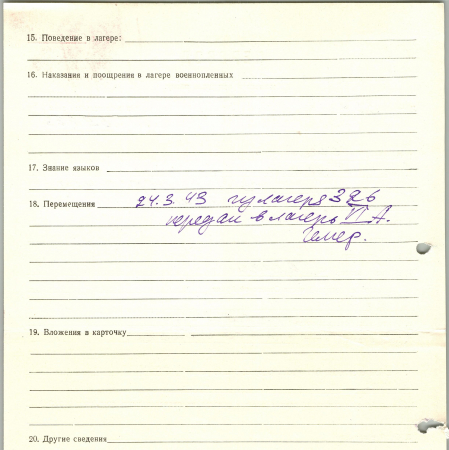 15. Поведение в лагере:
16. Наказания и поощрения в лагере военнопленных
17. Знание языков
18. Перемещения 24.3.43 из лагеря 326
передан в лагерь VI А.
Гемер.
19. Вложения в карточку
20. Другие сведения